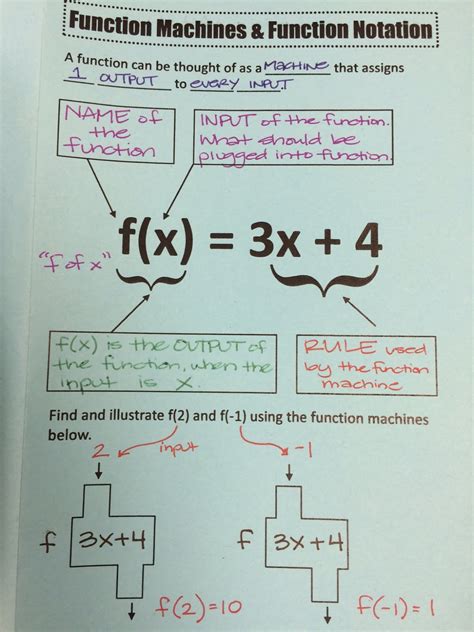 Function Machines & Function Notation
A function can be thought of as a MACHINE that assigns
1 OUTPUT to EVERY INPUT
NAME of
the
function
INPUT of the function.
What should be
plugged into function.
f(x) = 3x + 4
"f of x"
f(x) is the OUTPUT of
the function, when the
input is x.
RULE used
by the function
machine
Find and illustrate f(2) and f(-1) using the function machines
below.
2 input -1
f 3x+4 f 3x+4
f(2)=10 f(-1)=1